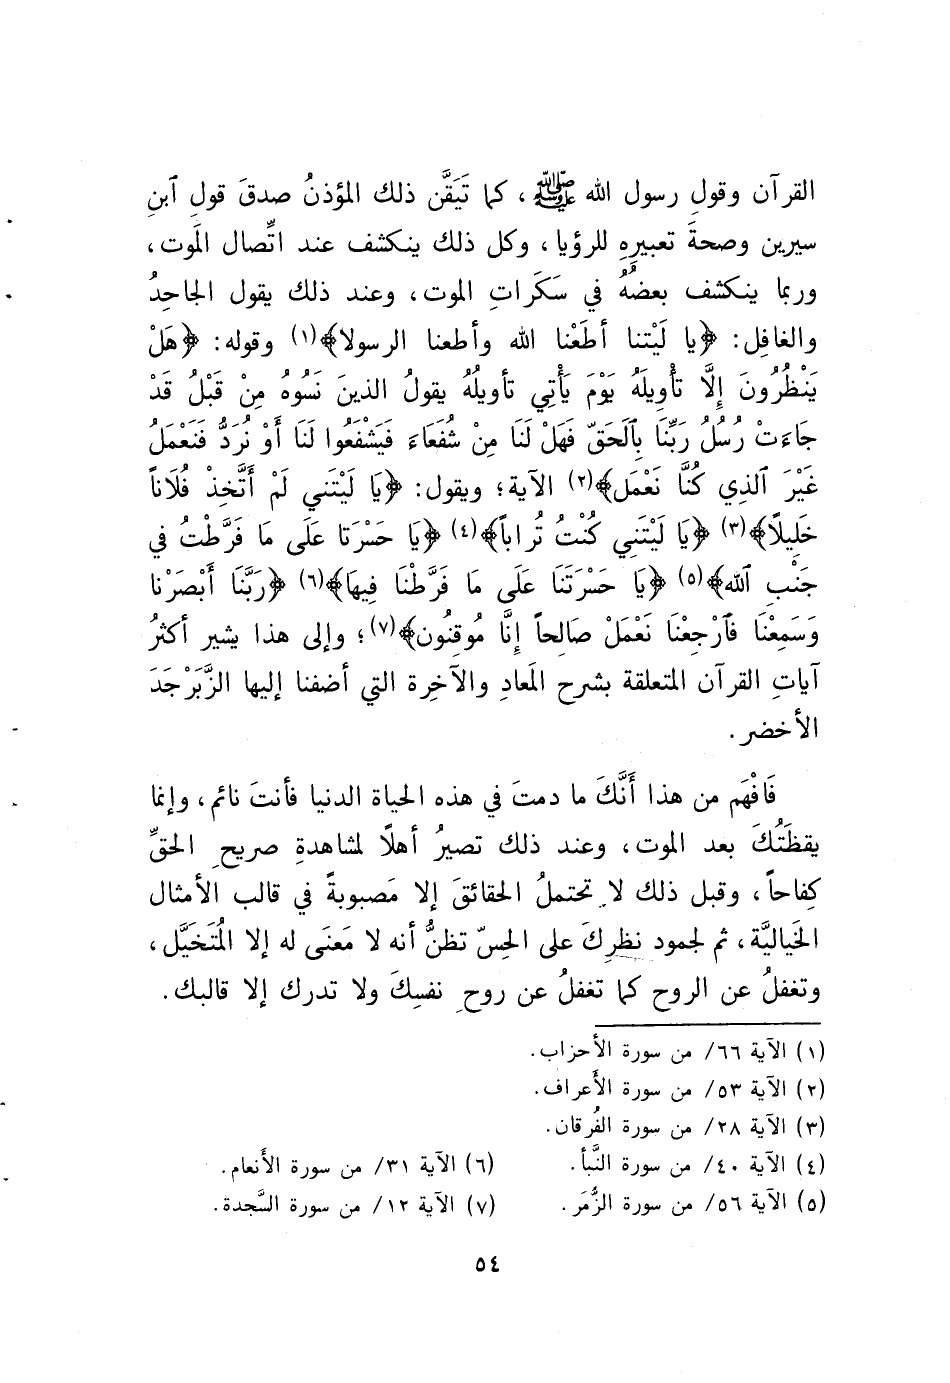 القرآن وقولِ رسول الله ﷺ، كما تَيَقَّن ذلك المؤذنُ صدقَ قولِ ٱبنِ
سيرين وصحةَ تعبيرِهِ للرؤيا، وكل ذلك ينكشف عند اتِّصال المَوت،
وربما ينكشف بعضُهُ في سَكَراتِ الموت، وعند ذلك يقول الجاحِدُ
والغافِل: ﴿يا لَيْتنا أطَعْنا الله وأطعنا الرسولا﴾(١) وقوله: ﴿هَلْ
يَنْظُرُونَ إِلَّا تأْوِيلَهُ يَوْمَ يَأْتِي تأويلُهُ يقولُ الذينَ نَسُوهُ مِنْ قَبْلُ قَدْ
جاءَتْ رُسُلُ رَبِّنَا بِٱلحَقّ فَهَلْ لَنَا مِنْ شُفَعَاءَ فَيَشْفَعُوا لَنَا أَوْ نُرَدُّ فَنَعْمَلُ
غَيْرَ ٱلذِي كُنَّا نَعْمَل﴾(٢) الآية؛ ويقول: ﴿يَا لَيْتَني لَمْ أَتَّخِذْ فُلَاناً
خَلِيلًا﴾(٣) ﴿يَا لَيْتَنِي كُنْتُ تُراباً﴾(٤) ﴿يَا حَسْرَتا عَلَى مَا فَرَّطْتُ في
جَنْبِ ٱلله﴾(٥) ﴿يَا حَسْرَتَنَا عَلَى مَا فَرَّطْنَا فِيهَا﴾(٦) ﴿رَبَّنَا أَبْصَرْنا
وَسَمِعْنَا فَٱرْجِعْنَا نَعْمَلْ صَالِحاً إِنَّا مُوقِنُون﴾(٧)؛ وإلى هذا يشير أكثرُ
آياتِ القرآن المتعلقة بشرح المَعادِ والآخِرة التي أضفنا إليها الزَّبَرْجَدَ
الأخضر.
فَافْهَم من هذا أَنَّكَ ما دمتَ في هذه الحياة الدنيا فأنتَ نائم، وإنما
يقظَتُكَ بعد الموت، وعند ذلك تصيرُ أهلًا لمشاهدةِ صريحِ الحقِّ
كِفاحاً، وقبل ذلك لا تحتملُ الحقائقَ إلا مَصبوبةً في قالب الأمثال
الخَياليَّة، ثم لجمود نظرِكَ على الحِسّ تظنُّ أنه لا مَعنَى له إلا المُتَخيَّل،
وتغفلُ عن الروح كما تغفلُ عن روحِ نفسِكَ ولا تدرك إلا قالبك.
(١) الآية ٦٦/ من سورة الأحزاب.
(٢) الآية ٥٣/ من سورة الأَعراف.
(٣) الآية ٢٨/ من سورة الفُرقان.
(٤) الآية ٤٠/ من سورة النَّبأ.
(٥) الآية ٥٦/ من سورة الزُّمَر.
(٦) الآية ٣١/ من سورة الأنعام.
(٧) الآية ١٢/ من سورة السَّجدة.
٥٤